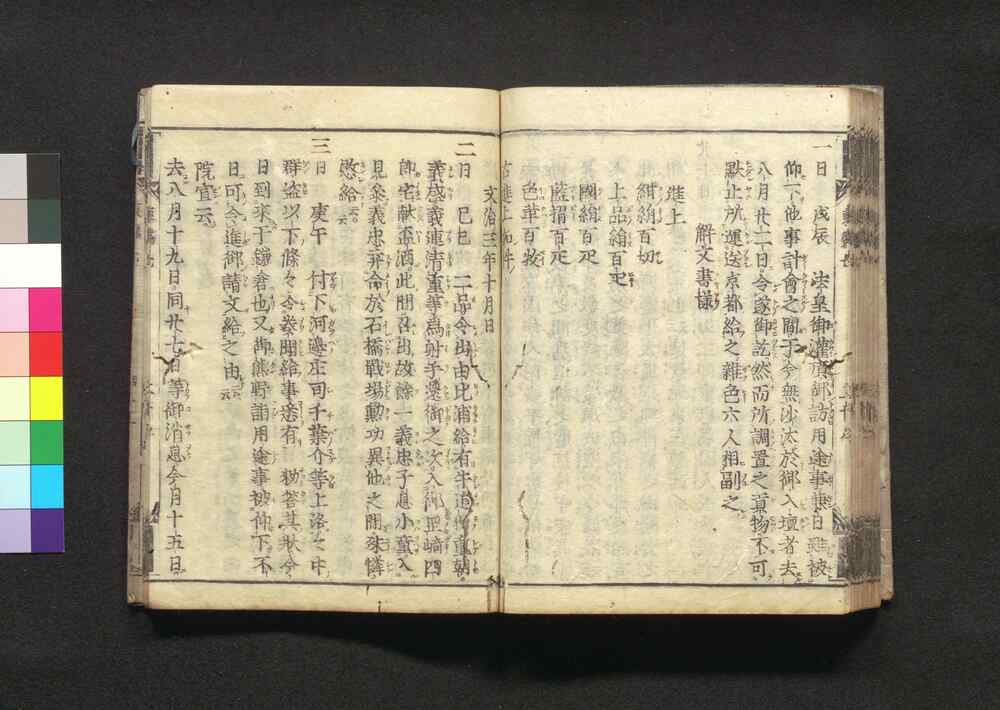 一日 戊辰 法皇御灌頂御訪用途事兼日雖被
仰下他事計會之間于今無沙汰於御入壇者去
八月廿二日令遂御訖然而所調置之貢物不可
默止於運送京都給之雜色六人相副之
解文書樣
進上
紺絹百切
上品絹百疋
國絹百疋
藍摺百疋
色革百枚
右進上如件
文治三年十月日
二日 己巳 二品令出由比浦給有牛追物重朝
義盛義連清重等為射手還御之次入御岡崎四
郎宅献盃酒此間召出故餘一義忠子息小童入
見參義忠弃命於石橋戰場勳功異他之間殊憐
愍給云云
三日 庚午 付下河邊庄司千葉介等上洛之中
群盗以下條々令奏聞給事悉有 勅答其狀今
日到來于鎌倉也又御熊野詣用途事被仰下不
日可令進御請文給之由云云
院宣云
去八月十九日同廿七日等御消息今月十五日